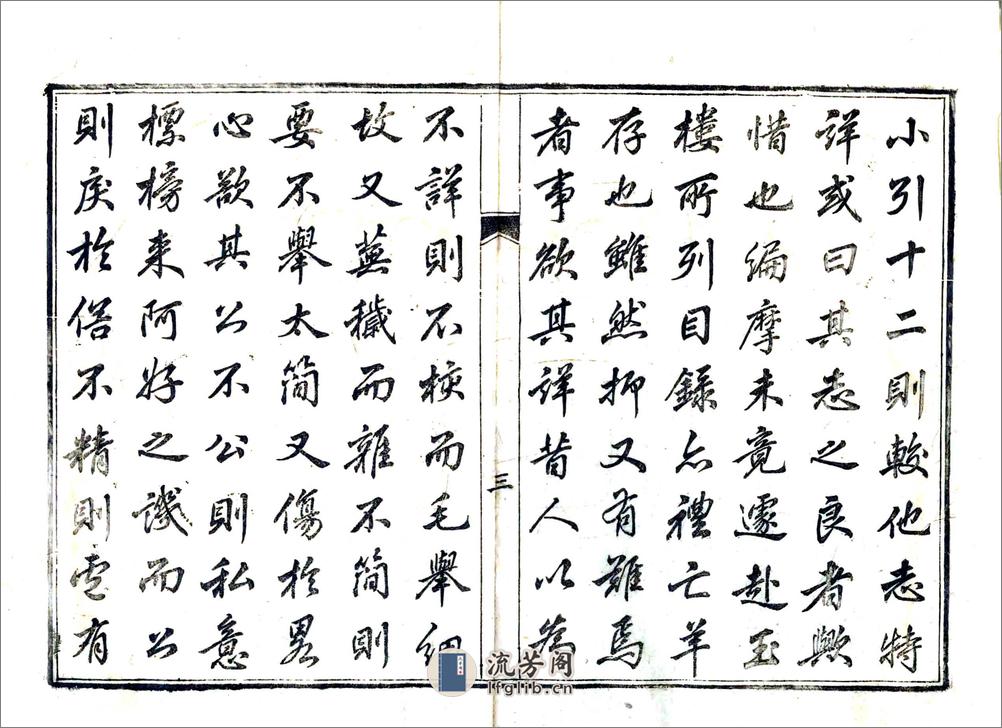 小引十二則較他志特
詳或曰其志之良者歟
惜也編摩未竟遽赴玉
樓所列目錄亦禮亡羊
存也雖然抑又有難焉
者事欲其詳昔人以為
三
不詳則不核而毛舉細
故又蕪穢而雜不簡則
要不舉太簡又傷於畧
心欲其公不公則私意
標榜來阿好之譏而公
則戾於俗不精則虛有
流芳阁
lfglib.cn